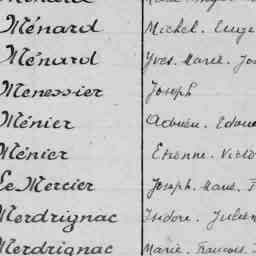 Ménard Michel. Euge
Ménard Yves. Marie. Jos
Menessier Joseph
Ménier Adrien. Edoua
Ménier Etienne. Victo
Le Mercier Joseph. Marie. F
Merdrignac Isidore. Julien
Merdrignac Marie. Francois.